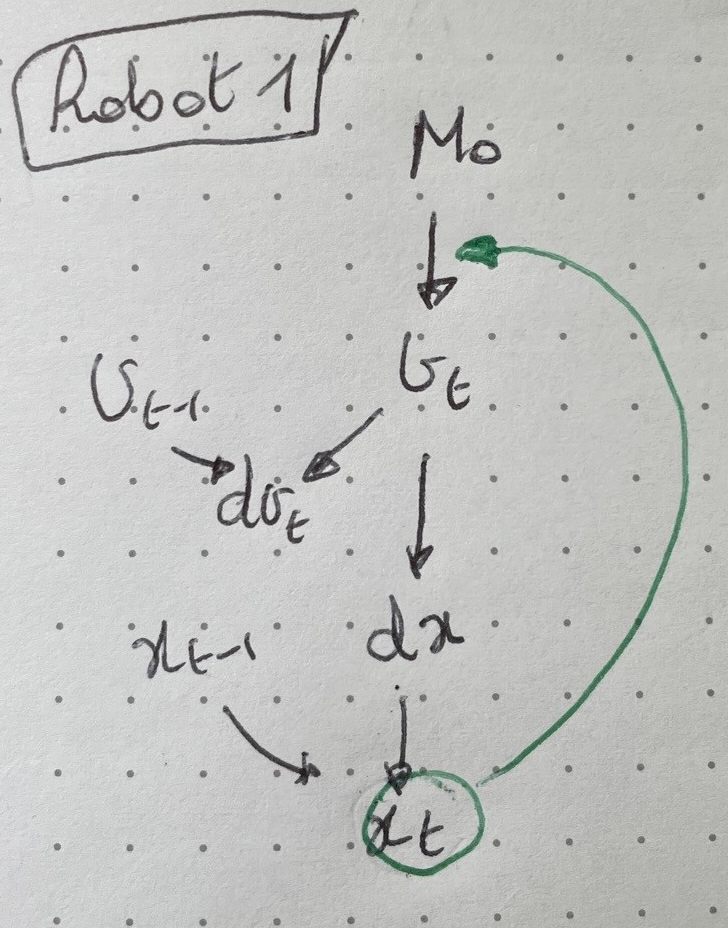 Robot 1
Mo
υt-1
υt
dυt
xt-1
dx
xt